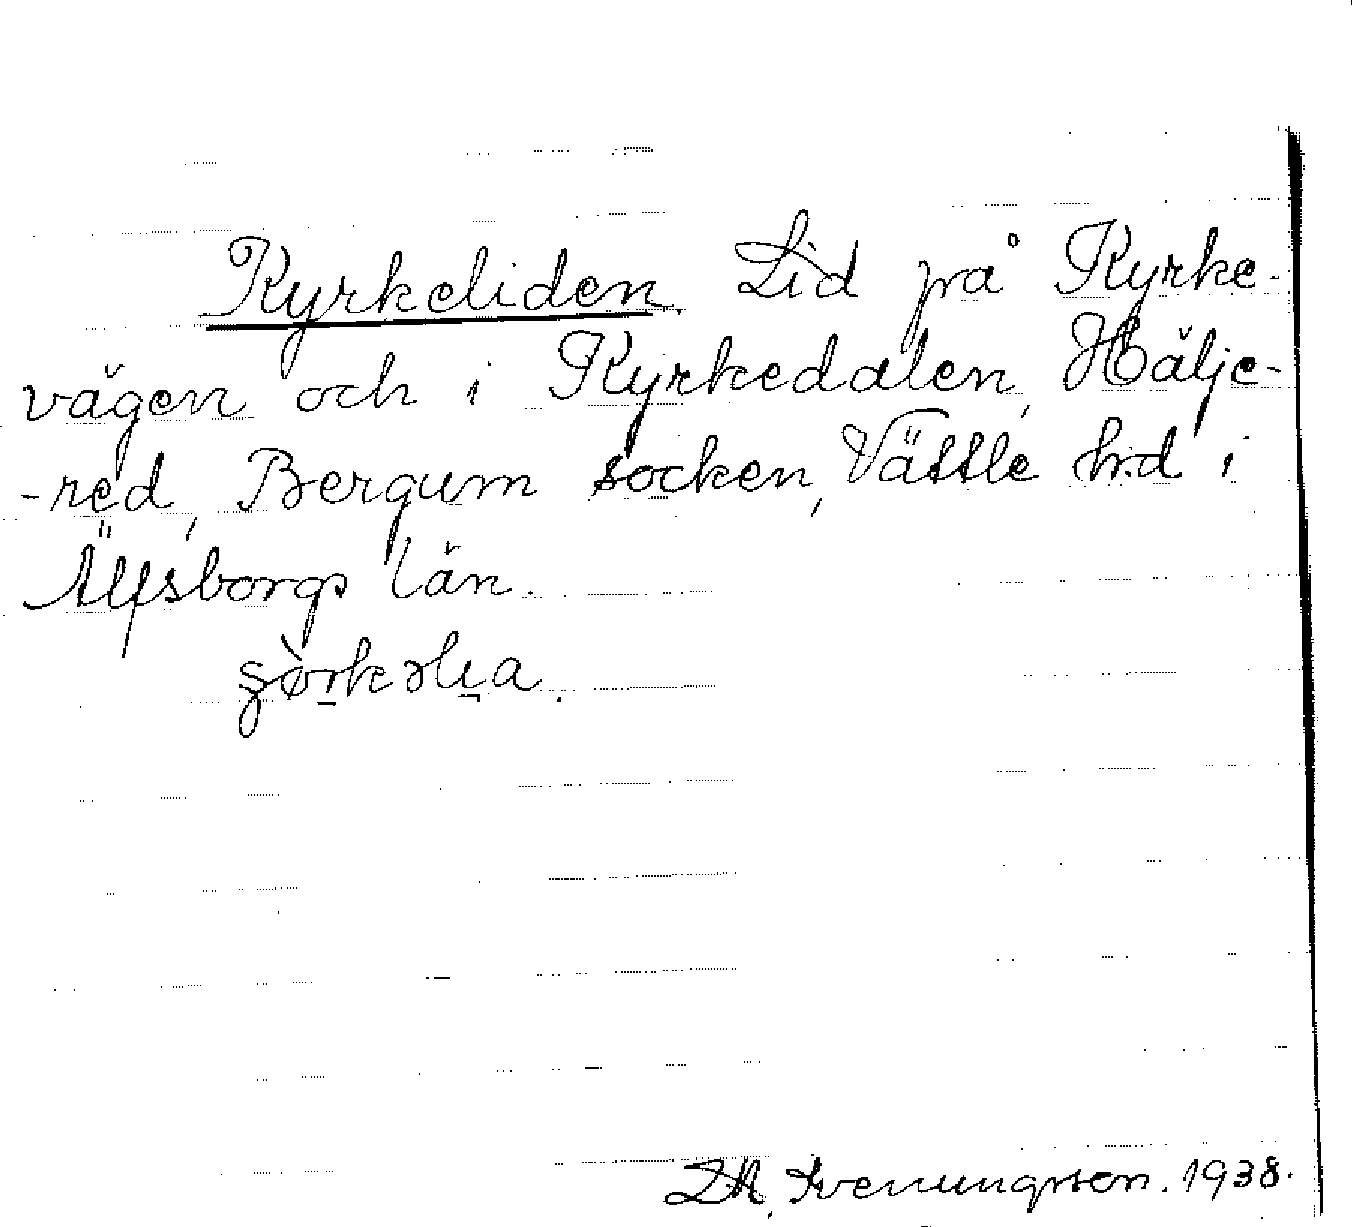 Kyrkeliden. Lid på Kyrke-
vägen och i Kyrkedalen, Hälje-
-red, Bergum socken, Vättle h:d i
Älfsborgs län.
Svenungsson. 1938.